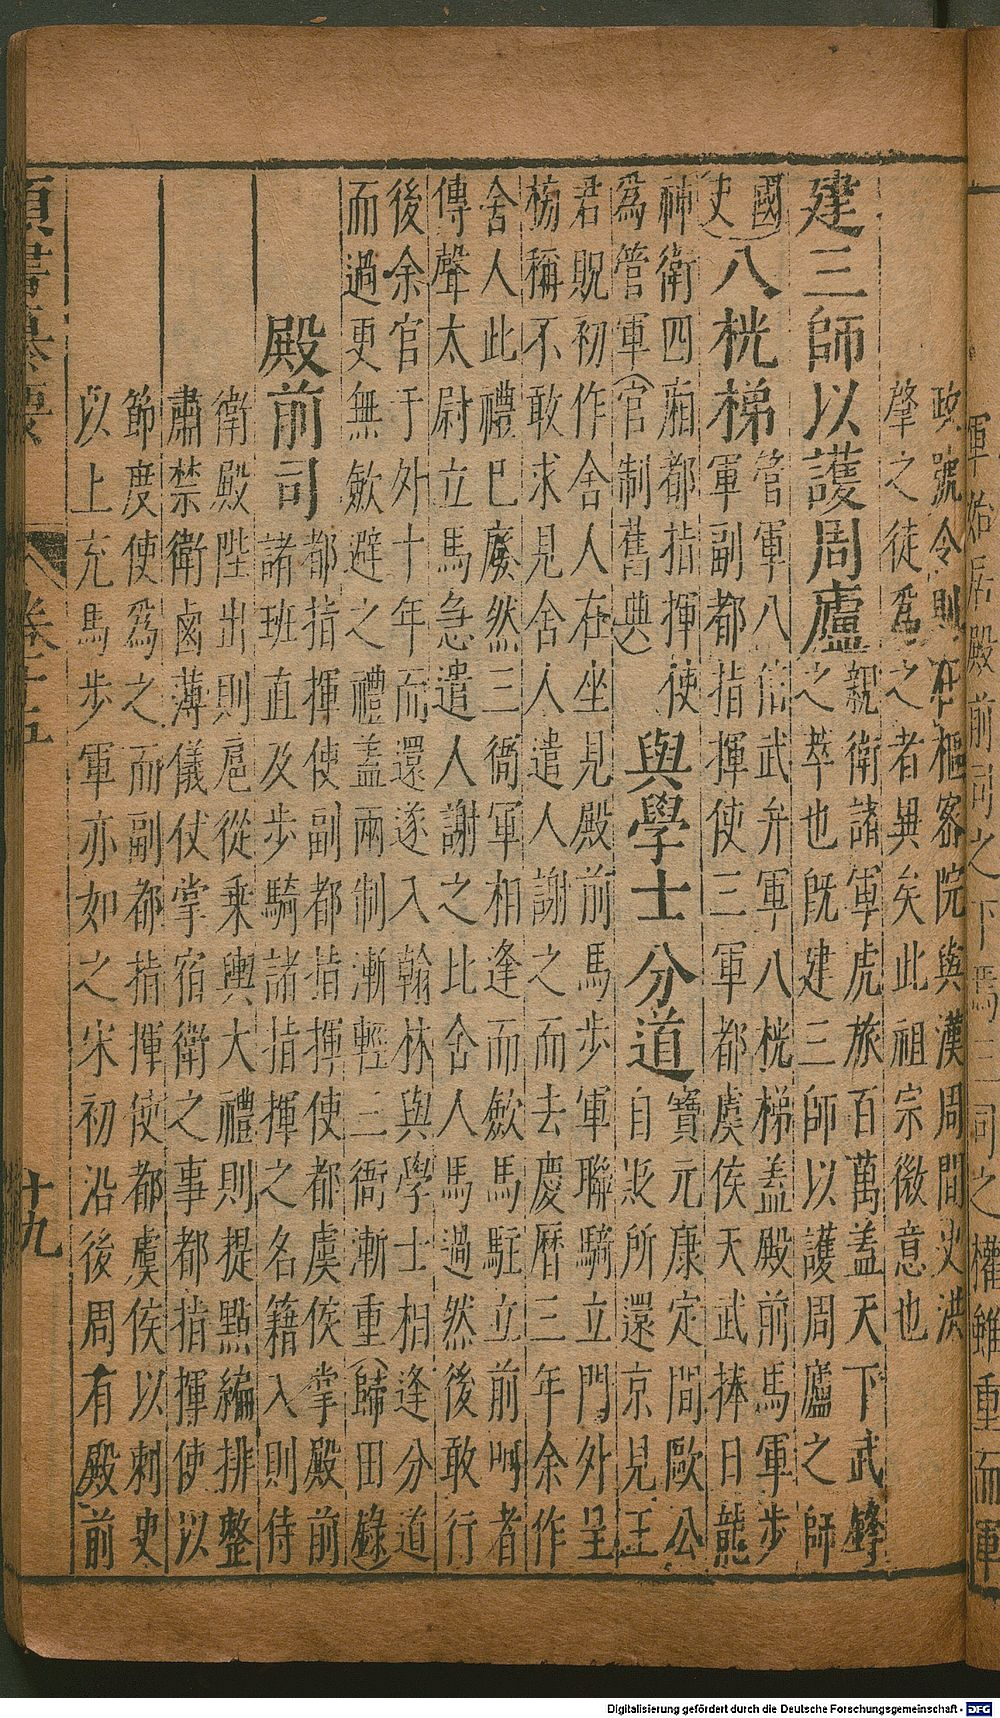 軍始居殿前司之下馬三司之權雖重而軍
政號令則在樞密院與漢周間史洪
肇之徒爲之者異矣此祖宗微意也
建三師以護周廬
親衛諸軍虎旅百萬蓋天下武鋒
之萃也既建三師以護周廬之師
國史
八桄梯
管軍八倍武弁軍八桄梯蓋殿前馬軍步
軍副都指揮使三軍都虞侯天武捧日龍
神衛四廂都指揮使
爲管軍(官制舊典)
與學士分道
寶元康定間歐公
自貶所還京見王
君貺初作舍人在坐見殿前馬步軍聯騎立門外呈
榜稱不敢求見舍人遣人謝之而去慶曆三年余作
舍人此禮巳廢然三衙軍相逢而斂馬駐立前呵者
傳聲太尉立馬急遣人謝之比舍人馬過然後敢行
後余官于外十年而還遂入翰林與學士相逢分道
而過更無斂避之禮蓋兩制漸輕三衙漸重(歸田錄)
殿前司
都指揮使副都指揮使都虞侯掌殿前
諸班直及步騎諸指揮之名籍入則侍
衛殿陛出則扈從乘輿大禮則提點編排整
肅禁衛鹵薄儀仗掌宿衛之事都指揮使以
節度使爲之而副都指揮使都虞侯以刺史
以上充馬步軍亦如之宋初沿後周有殿前
十九
Digitalisierung gefördert durch die Deutsche Forschungsgemeinschaft - DFG